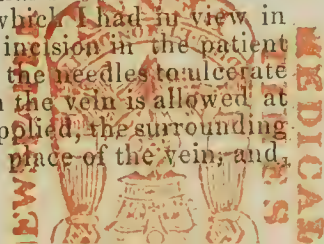 which I had in view in
incision in the patient
the needles to ulcerate
the vein is allowed at
applied, the surrounding
place of the vein, and
MEDICAL